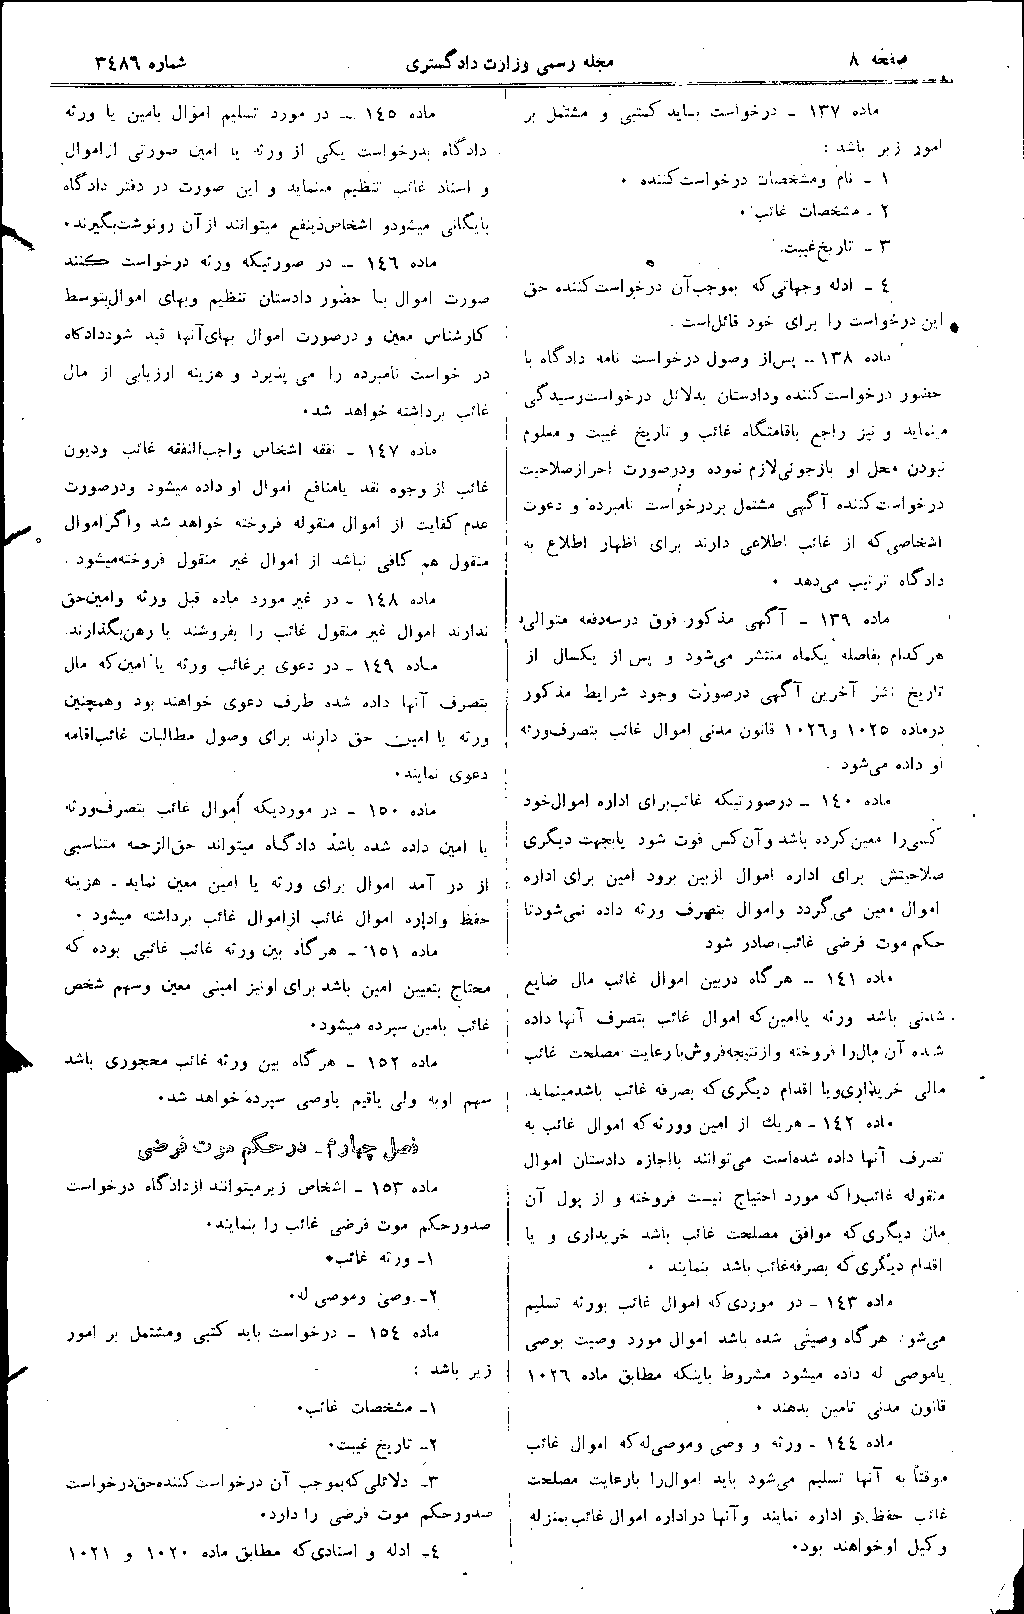 صفحه ۸
مجله رسمی وزارت دادگستری
شماره ۳٤۸٦
ماده ۱۳۷ ـ درخواست باید کتبی و مشتمل بر
امور زیر باشد :
۱ ـ نام ومشخصات درخواست‌کننده ٠
۲ ـ مشخصات غائب ٠
۳ ـ تاریخ غیبت.
٤ ـ ادله وجهاتی‌که بموجب‌آن درخواست‌کننده حق
این درخواست را برای خود قائل‌است .
ماده ۱۳۸ ـ پس‌از وصول درخواست نامه دادگاه با
حضور درخواست‌کننده ودادستان بدلائل درخواست‌رسیدگی
مینماید و نیز راجع باقامتگاه غائب و تاریخ غیبت و معلوم
نبودن محل او بازجوئی‌لازم نموده ودرصورت احرازصلاحیت
درخواست‌کننده آگهی مشتمل بردرخواست نامبرده و دعوت
اشخاصی‌که از غائب اطلاعی دارند برای اظهار اطلاع به
دادگاه ترتیب می‌دهد ٠
ماده ۱۳۹ ـ آگهی مذکور فوق درسه‌دفعه متوالی
هرکدام بفاصله یکماه منتشر می‌شود و پس از یکسال از
تاریخ نشر آخرین آگهی درصورت وجود شرایط مذکور
درماده ۱۰۲۵ و۱۰۲٦ قانون مدنی اموال غائب بتصرف‌ورثه
او داده می‌شود .
ماده ۱٤۰ ـ درصورتیکه غائب‌برای اداره اموال‌خود
کسی‌را معین‌کرده باشد وآن‌کس فوت شود یابجهت دیگری
صلاحیتش برای اداره اموال ازبین برود امین برای اداره
اموال معین می‌گردد واموال بتصرف ورثه داده نمی‌شودتا
حکم موت فرضی غائب صادر شود
ماده ۱٤۱ ـ هرگاه دربین اموال غائب مال ضایع
شدنی باشد ورثه یاامین‌که اموال غائب بتصرف آنها داده
شده آن مال‌را فروخته وازنتیجه‌فروش‌بارعایت مصلحت غائب
مالی خریداری‌ویا اقدام دیگری‌که بصرفه غائب باشدمینماید.
ماده ۱٤۲ ـ هریك از امین وورثه‌که اموال غائب به
تصرف آنها داده شده‌است می‌توانند بااجازه دادستان اموال
منقوله غائب‌راکه مورد احتیاج نیست فروخته و از پول آن
مال دیگری‌که موافق مصلحت غائب باشد خریداری و یا
اقدام دیگری‌که بصرفه‌غائب‌باشد بنمایند ٠
ماده ۱٤۳ ـ در موردی‌که اموال غائب بورثه تسلیم
می‌شود هرگاه وصیتی شده باشد اموال مورد وصیت بوصی
یاموصی له داده میشود مشروط باینکه مطابق ماده ۱۰۲٦
قانون مدنی تامین بدهند ٠
ماده ۱٤٤ ـ ورثه و وصی وموصی‌له‌که اموال غائب
موقتاً به آنها تسلیم می‌شود باید اموال‌را بارعایت مصلحت
غائب حفظ و اداره نمایند وآنها دراداره اموال غائب‌بمنزله
وکیل اوخواهند بود٠
ماده ۱٤۵ ـ در مورد تسلیم اموال بامین یا ورثه
دادگاه بدرخواست یکی از ورثه یا امین صورتی ازاموال
و اسناد غائب تنظیم مینماید و این صورت در دفتر دادگاه
بایگانی میشودو اشخاص‌ذینفع میتوانند ازآن رونوشت‌بگیرند٠
ماده ۱٤٦ ـ در صورتیکه ورثه درخواست کنند
صورت اموال بـا حضور دادستان تنظیم وبهای اموال‌بتوسط
کارشناس معین و درصورت اموال بهای‌آنها قید شوددادگاه
در خواست نامبرده را می پذیرد و هزینه ارزیابی از مال
غائب برداشته خواهد شد٠
ماده ۱٤۷ ـ نفقه اشخاص واجب‌النفقه غائب ودیون
غائب از وجوه نقد یامنافع اموال او داده میشود ودرصورت
عدم کفایت از اموال منقوله فروخته خواهد شد واگراموال
منقول هم کافی نباشد از اموال غیر منقول فروخته‌میشود .
ماده ۱٤۸ ـ در غیر مورد ماده قبل ورثه وامین‌حق
ندارند اموال غیر منقول غائب را بفروشند یا رهن‌بگذارند.
ماده ۱٤۹ ـ در دعوی برغائب ورثه یا امین‌که مال
بتصرف آنها داده شده طرف دعوی خواهند بود وهمچنین
ورثه یا امین حق دارند برای وصول مطالبات غائب‌اقامه
دعوی نمایند٠
ماده ۱۵۰ ـ در موردیکه اموال غائب بتصرف‌ورثه
یا امین داده شده باشد دادگاه میتواند حق‌الزحمه متناسبی
از در آمد اموال برای ورثه یا امین معین نماید ـ هزینه
حفظ واداره اموال غائب ازاموال غائب برداشته میشود ٠
ماده ۱۵۱ ـ هرگاه بین ورثه غائب غائبی بوده که
محتاج بتعیین امین باشد برای اونیز امینی معین وسهم شخص
غائب بامین سپرده میشود٠
ماده ۱۵۲ ـ هرگاه بین ورثه غائب محجوری باشد
سهم اوبه ولی یاقیم یاوصی سپرده خواهد شد٠
فصل چهارم ـ درحکم موت فرضی
ماده ۱۵۳ ـ اشخاص زیرمیتوانند ازدادگاه درخواست
صدورحکم موت فرضی غائب را بنمایند٠
۱ـ ورثه غائب٠
۲ـ وصی وموصی له٠
ماده ۱۵٤ ـ درخواست باید کتبی ومشتمل بر امور
زیر باشد :
۱ـ مشخصات غائب٠
۲ـ تاریخ غیبت٠
۳ـ دلائلی‌که‌بموجب آن درخواست‌کننده‌حق‌درخواست
صدورحکم موت فرضی را دارد٠
٤ـ ادله و اسنادی‌که مطابق ماده ۱۰۲۰ و ۱۰۲۱